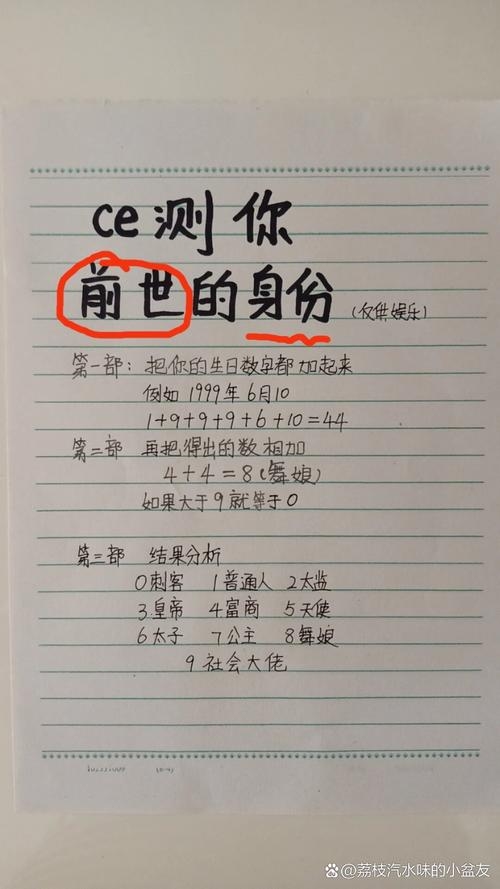 ce测你
前世的身份(仅供娱乐)
第一部：把你的生日数字都加起来
例如 1999年6月10
1+9+9+9+6+10=44
第二部 再把得出的数相加
4+4=8(舞娘)
如果大于9就等于0
第三部 结果分析
0刺客 1普通人 2太监
3皇帝 4富商 5天使
6太子 7公主 8舞娘
9社会大佬
@荔枝汽水味的小盆友